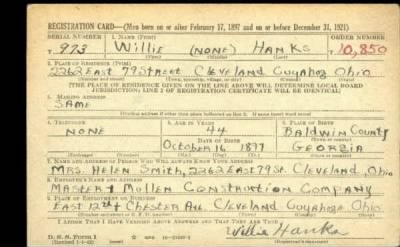 REGISTRATION CARD—(Men born on or after February 17, 1897 and on or before December 31, 1921)
SERIAL NUMBER 1. NAME (Print) ORDER NUMBER
T 973 Willie (NONE) Hanks T 10,850
(First) (Middle) (Last)
2. PLACE OF RESIDENCE (Print)
2262 East 79 Street Cleveland Cuyahoga Ohio
(Number and street) (Town, township, village, or city) (County) (State)
[THE PLACE OF RESIDENCE GIVEN ON THE LINE ABOVE WILL DETERMINE LOCAL BOARD
JURISDICTION; LINE 2 OF REGISTRATION CERTIFICATE WILL BE IDENTICAL]
3. MAILING ADDRESS
SAME
[Mailing address if other than place indicated on line 2. If same insert word same]
4. TELEPHONE 5. AGE IN YEARS 6. PLACE OF BIRTH
NONE 44 Baldwin County
DATE OF BIRTH
October 16 1897 Georgia
(Exchange) (Number) (Mo.) (Day) (Yr.) (State or country)
7. NAME AND ADDRESS OF PERSON WHO WILL ALWAYS KNOW YOUR ADDRESS
Mrs. Helen Smith, 2262 East 79 St. Cleveland, Ohio
8. EMPLOYER'S NAME AND ADDRESS
Masters Mullen Construction Company
9. PLACE OF EMPLOYMENT OR BUSINESS
East 12th Chester Ave Cleveland Cuyahoga Ohio
(Number and street or R. F. D. number) (Town) (County) (State)
I AFFIRM THAT I HAVE VERIFIED ABOVE ANSWERS AND THAT THEY ARE TRUE.
D. S. S. Form 1
(Revised 1-1-42) (over)
Willie Hanks